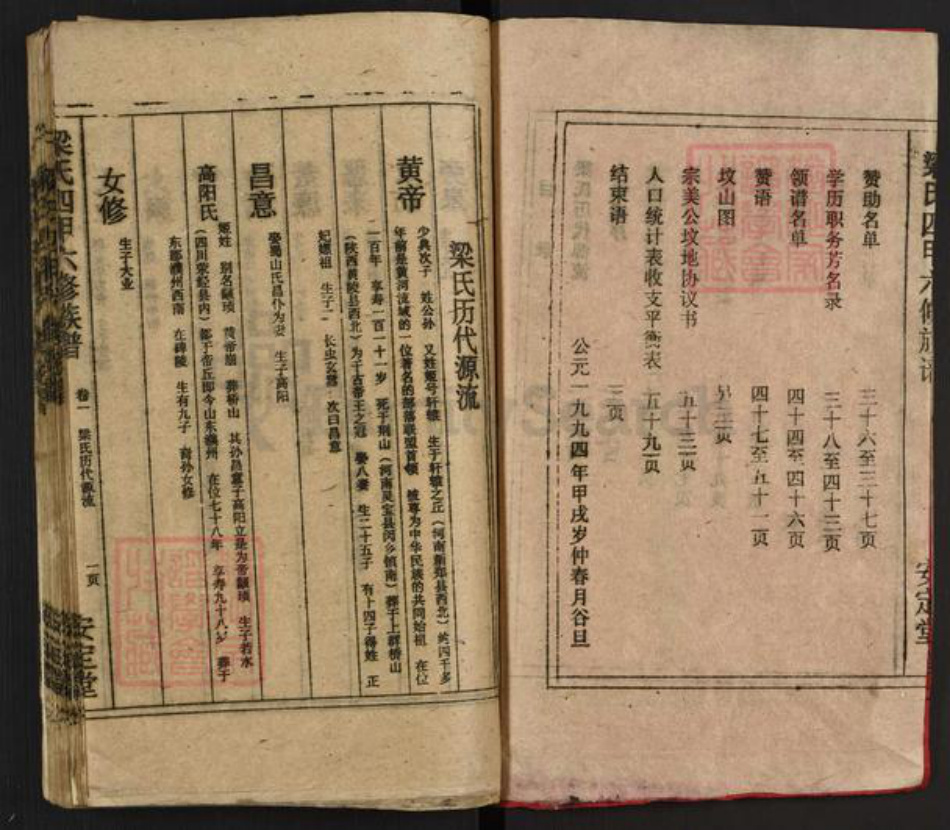 梁氏四甲六修族谱
安定堂
赞助名单 三十六至三十七页
学历职务芳名录 三十八至四十三页
领谱名单 四十四至四十六页
赞语 四十七至五十一页
坟山图
宗美公坟地协议书 五十三页
人口统计表收支平衡表 五十九页
结束语
公元一九九四年甲戌岁仲春月谷旦
梁氏历代源流
黄帝
少典次子 姓公孙 又姓姬号轩辕 生于轩辕之丘(河南新郑县西北)约四千多
年前是黄河流域的一位著名的部落联盟首领 被尊为中华民族的共同始祖 在位
一百年 享寿一百一十一岁 死于荆山(河南灵宝县阌乡镇南)葬于上群桥山
(陕西黄陵县西北)为千古帝王之冠 娶八妻 生二十五子 有十四子得姓 正
妃嫘祖 生子二 长玄嚣 次曰昌意
昌意
娶蜀山氏昌仆为妻 生子高阳
高阳氏
姬姓 别名颛顼 黄帝崩 葬桥山 其孙昌意子高阳立是为帝颛顼 生子若水
(四川荥经县内)都于帝丘即今山东濮州 在位七十八年 享寿九十八岁 葬于
东郡濮州西南 在碑陵 生有九子 裔孙女修
女修
生子大业
梁氏四甲六修族谱
卷一 梁氏历代源流
一页
安定堂